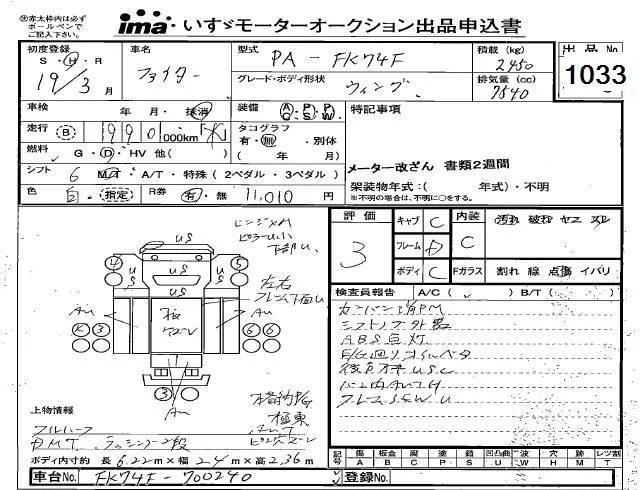 ※赤太枠内は必ず
ボールペンで
ご記入下さい。
ima いすゞモーターオークション出品申込書
初度登録 S・H・R 19/3月
車名 ファイター
型式 PA-FK74F
積載(kg) 2450
出品No 1033
グレード・ボディ形状 ウィング
排気量(cc) 7540
車検 年 月・抹消
装備 A/C P/S P/W
特記事項
走行 B 1990,000km「メ」
タコグラフ 有・無・別体 ( 年 月)
燃料 G・D・HV 他( )
メーター改ざん 書類2週間
シフト 6 M/T・A/T・特殊(2ペダル・3ペダル)
架装物年式:( 年式)・不明
※不明の場合は、不明に○をする。
色 白 指定 R券 有・無 11,010円
評価 3
キャブ C
内装 C
汚れ 破れ ヤニ スレ
フレーム D
ボディ C
Fガラス 割れ 線 点傷 イバリ
検査員報告 A/C( ) B/T( )
カンバン消PM
シフトノブ外品
ABS点灯
E/G廻りオイルベタ
フレームSEWU
左右
フレーム下面U
US
US
US
US
AU
AU
AU
4
5
3
6
6
3
上物情報
フルハーフ
P.M.T. ラッシング2段
ボディ内寸約 長6.22m×幅2.4m×高2.36m
車台No. FK74F-700240
登録No.
記号 傷 A 板金 B 腐 C 塗 P 錆 S 凹凸曲 U 波 W 穴 H 跡 M レツ割 T